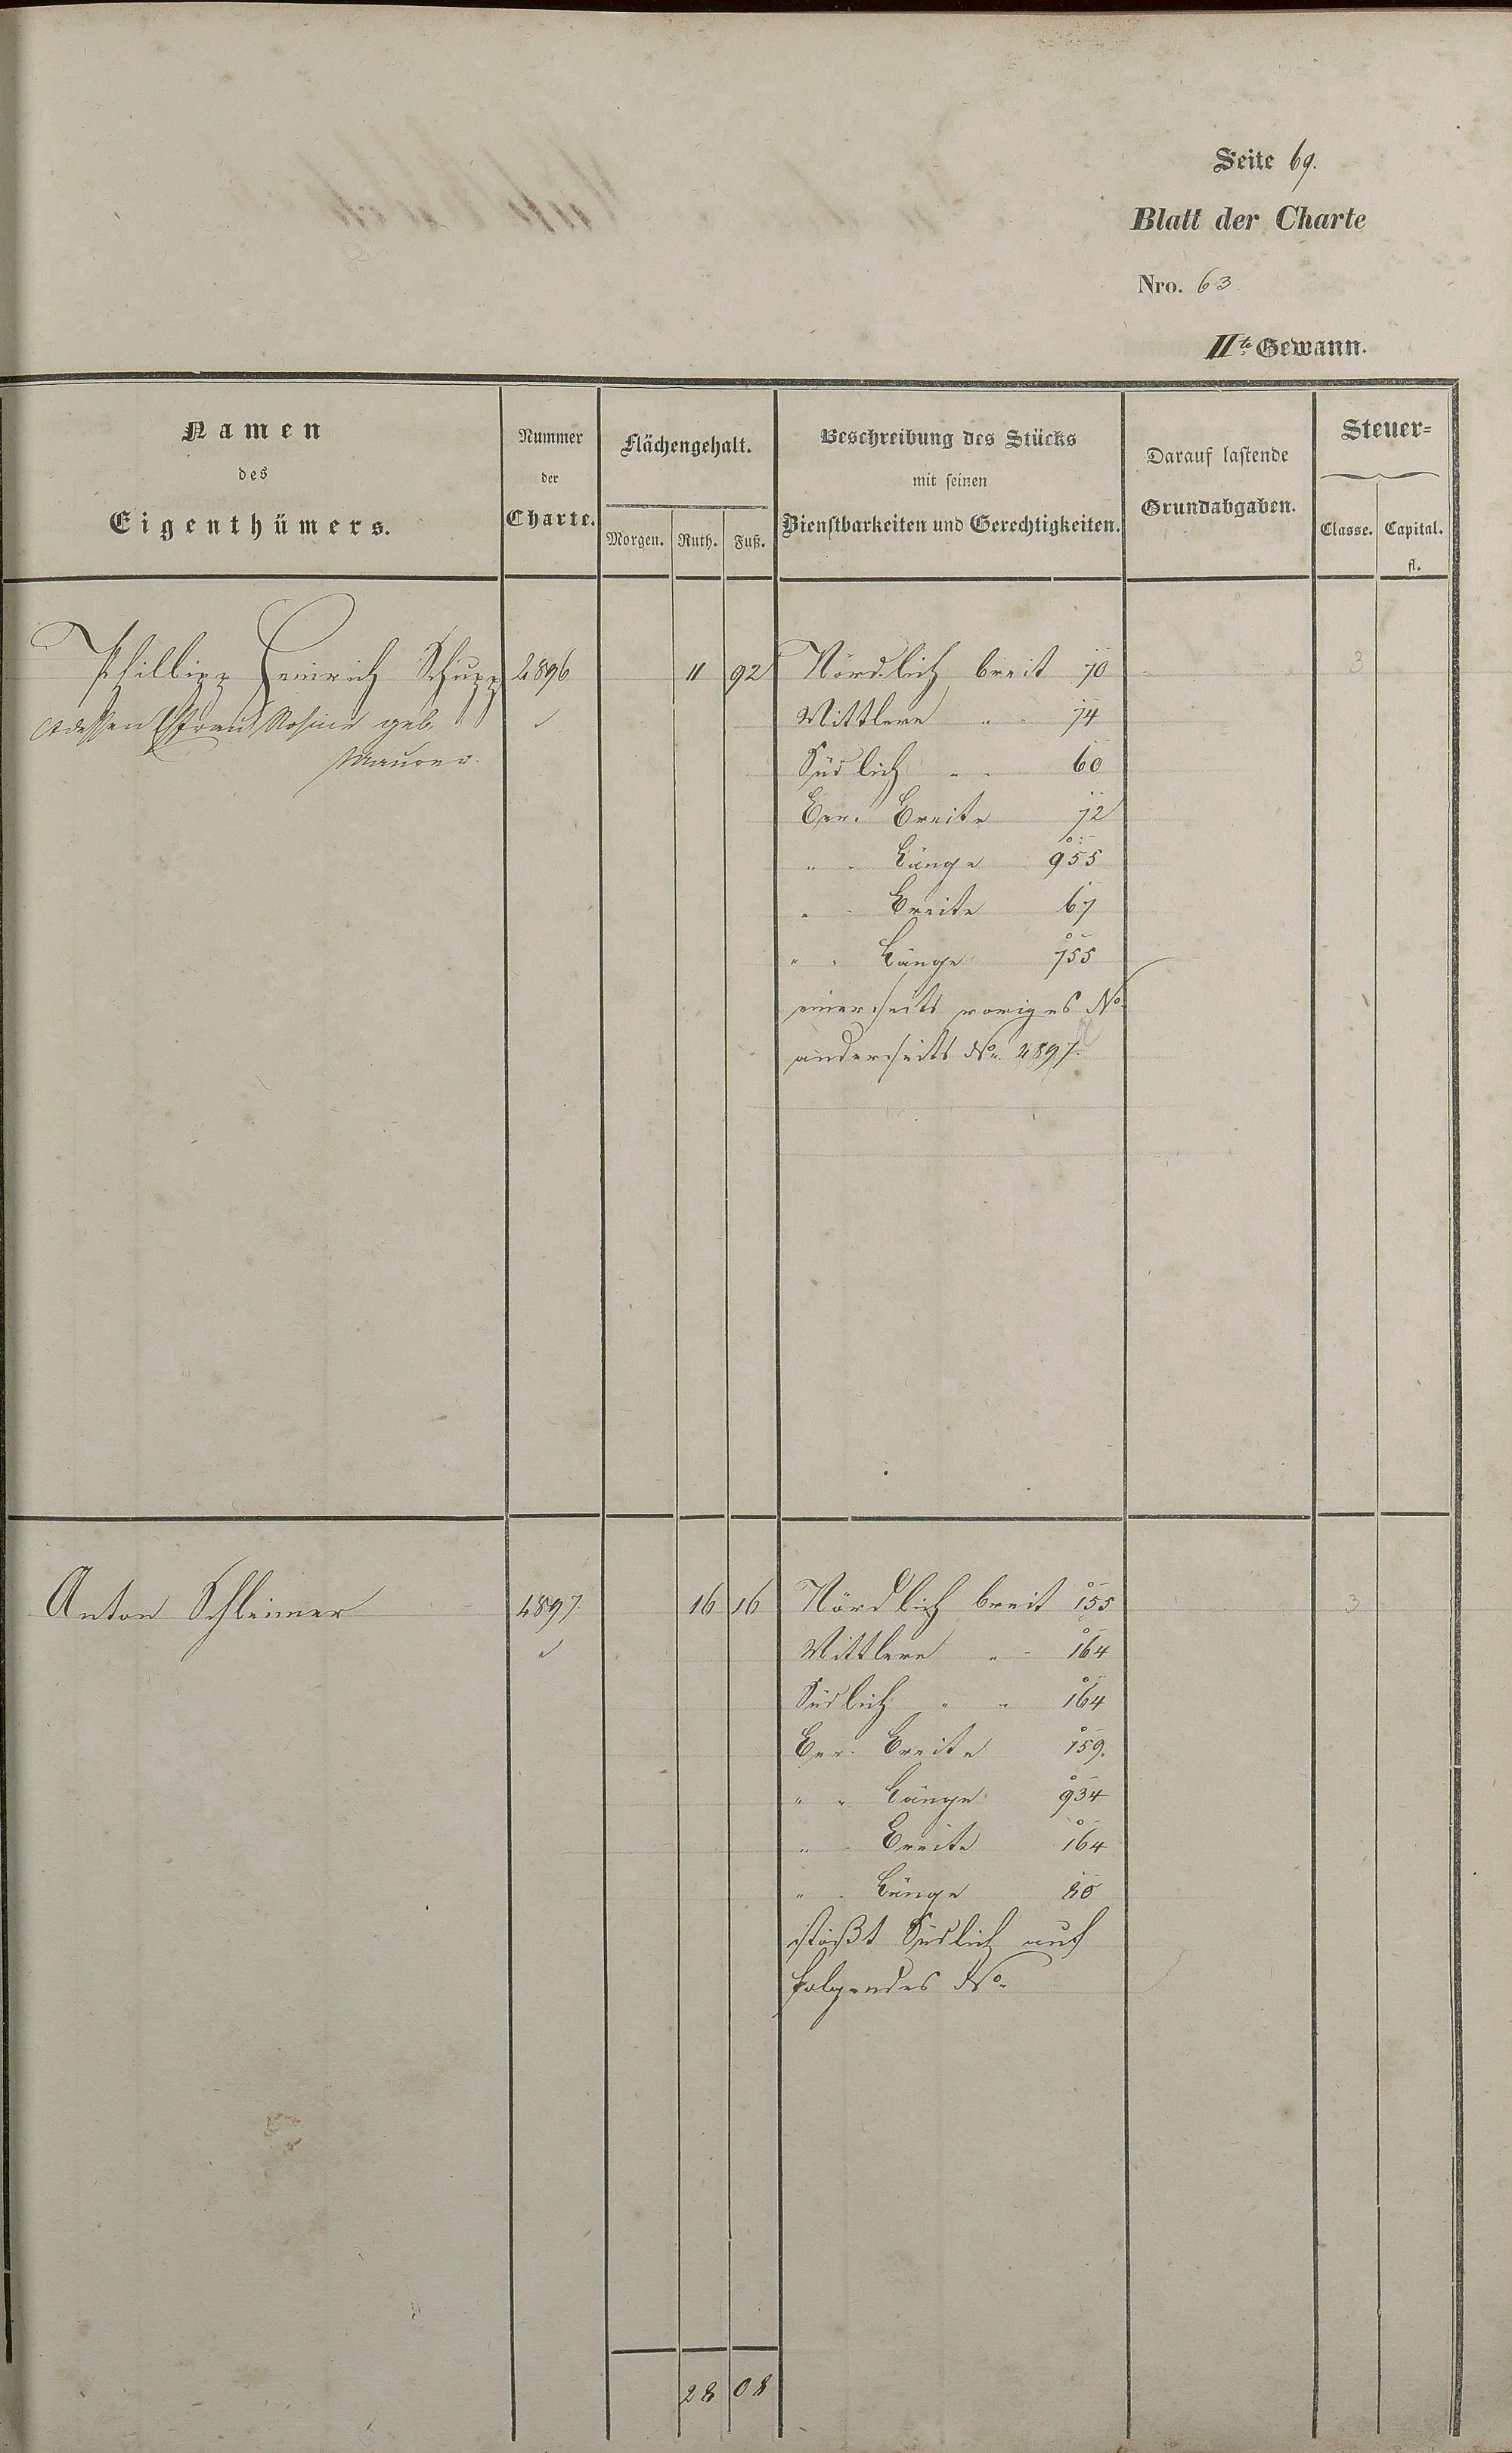 Seite 69.
Blatt der Charte
Nro. 63
IIte Gewann.
Namen
des
Eigenthümers.
Nummer
der
Charte.
Flächengehalt.
Morgen. Ruth. Fuß.
Beschreibung des Stücks
mit seinen
Dienstbarkeiten und Gerechtigkeiten.
Darauf lastende
Grundabgaben.
Steuer=
Classe. Capital.
fl.
Phillipp Heinrich Schupp 4896 11 92 Nördlich breit 70 3
dessen Efrau Rosine geb. Mittlere " " 74
Maurer. Südlich " " 60
Ber. Breite 72
" " Länge 955
" " Breite 67
" " Länge 755
einerseits voriges No
anderseits No. 4897.
Anton Schleimer 4897. 16 16 Nördlich breit 155 3
Mittlere " " 164
Südlich " " 164
Ber. Breite 159.
" " Länge 934
" " Breite 164
" " Länge 80
stößt Südlich auf
folgendes No.
28 08